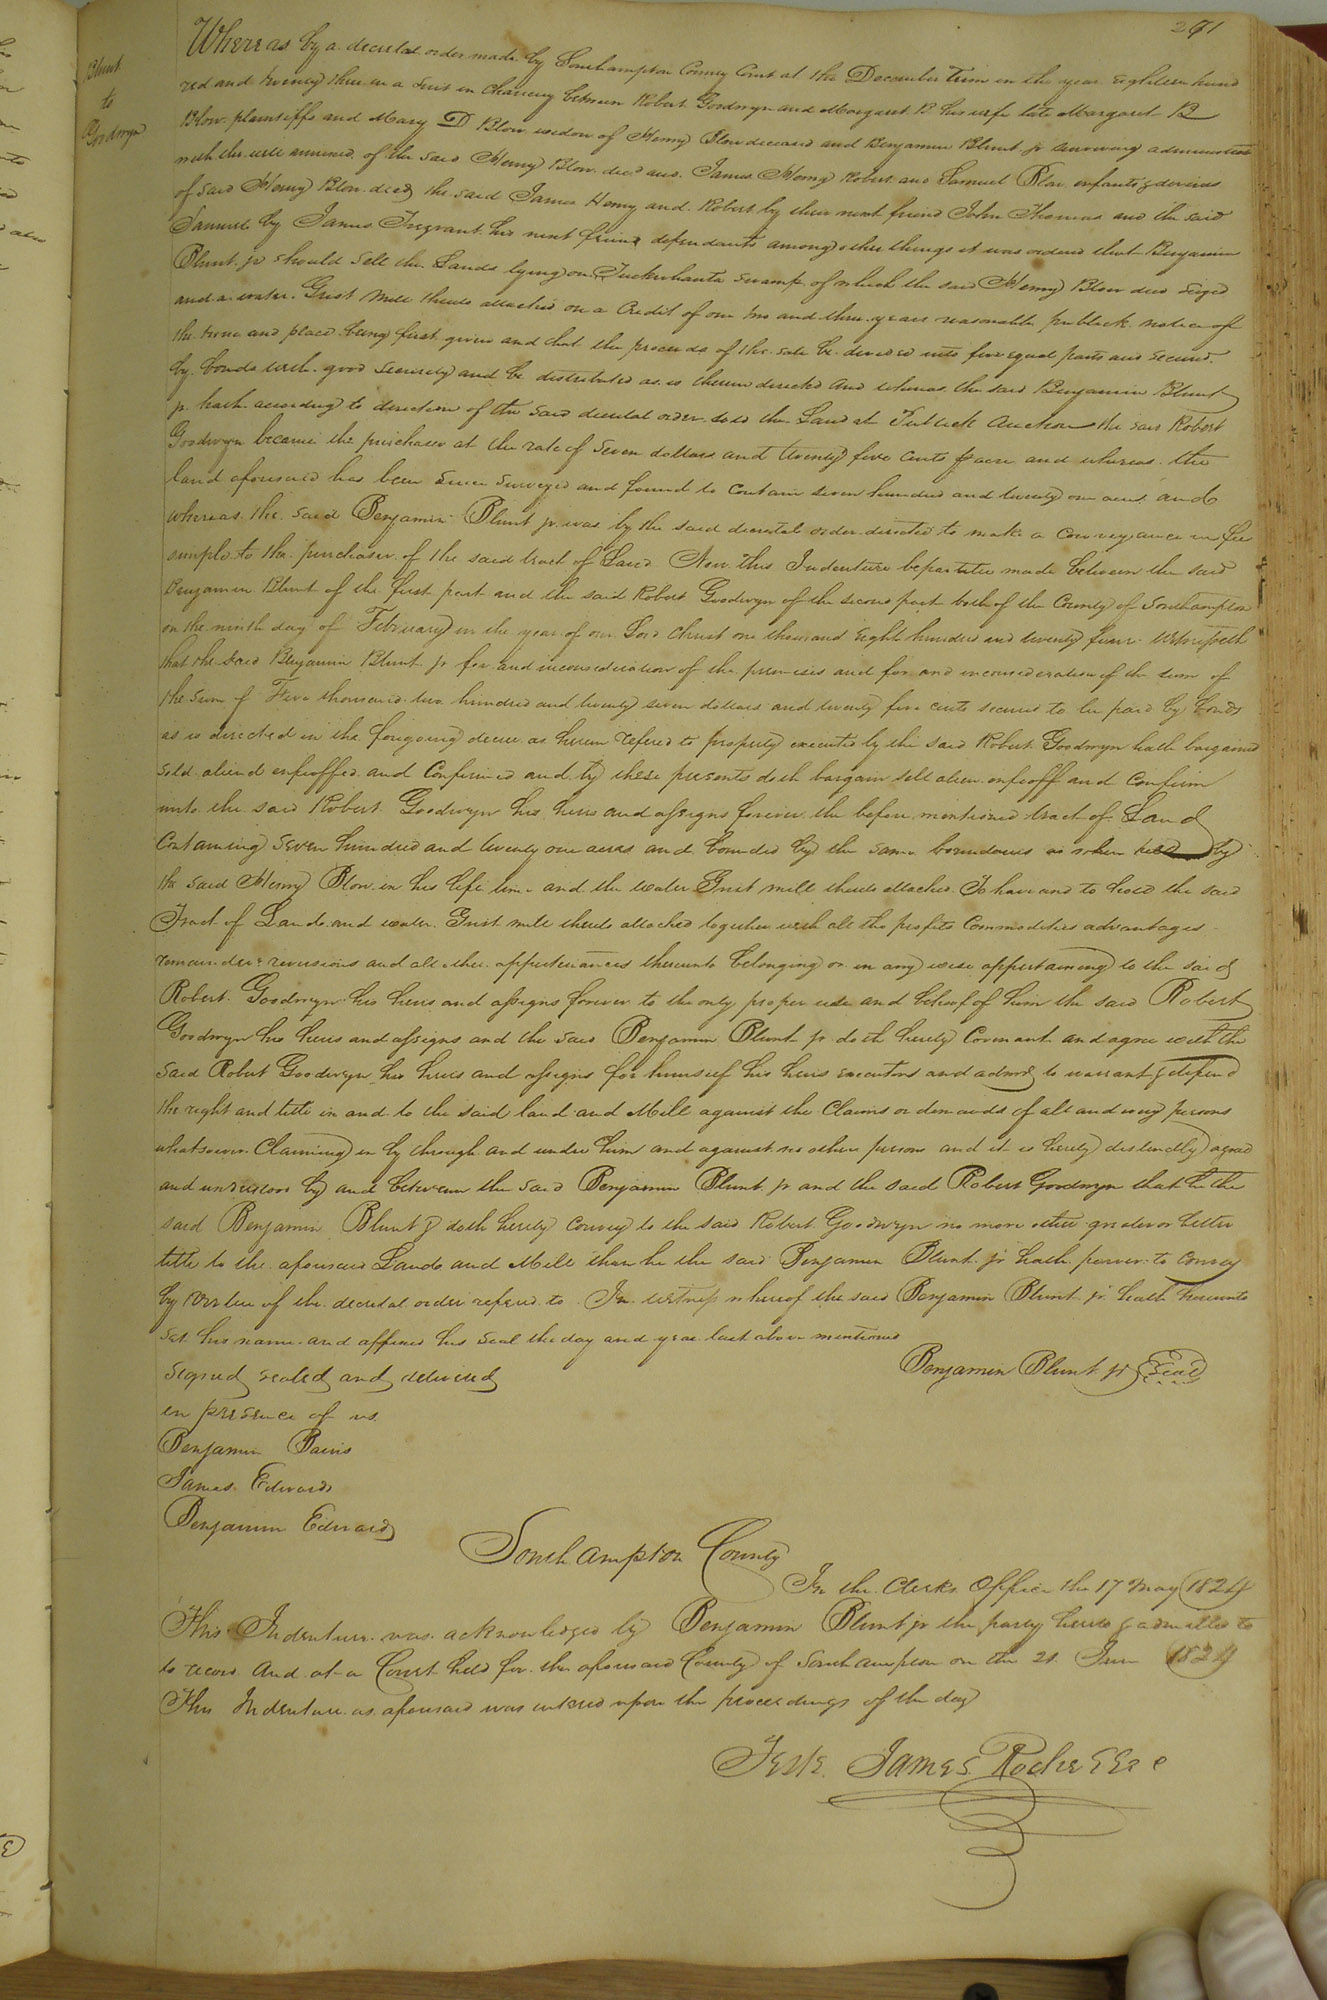 291
Blunt
to
Goodwyn
Whereas by a decretal order made by Southampton County Court at the December Term in the year Eighteen hund
red and twenty three in a Suit in Chancery between Robert Goodwyn and Margaret B his wife late Margaret B
Blow plaintiffs and Mary D Blow widow of Henry Blow deceased and Benjamin Blunt jr surviving administrator
with the will annexed of the said Henry Blow decd and James Henry Robert and Samuel Blow infants & devisees
of said Henry Blow decd the said James Henry and Robert by their next friend John Thomas and the said
Samuel by James Tregvant his next friend defendants among other things it was ordered that Benjamin
Blunt jr should Sell the Lands lying on Tuckwhanta Swamp of which the said Henry Blow died Seized
and a water Grist Mill thereto attached on a Credit of one two and three years reasonable publick notice of
the time and place being first given and that the proceeds of the sale be devided into five equal parts and secured
by bonds with good Security and be distributed as is therein directed And whereas the said Benjamin Blunt
jr hath according to direction of the said decretal order sold the Land at Publick Auction the said Robert
Goodwyn became the purchaser at the rate of Seven dollars and twenty five Cents p acre and whereas the
land aforesaid has been Since Surveyed and found to Contain seven hundred and twenty one acres and
whereas the said Benjamin Blunt jr was by the said decretal order directed to make a Conveyance in fee
simple to the purchaser of the said tract of Land Now this Indenture bepartite made between the said
Benjamin Blunt of the first part and the said Robert Goodwyn of the second part both of the County of Southampton
on the ninth day of February in the year of our Lord Christ one thousand Eight hundred and twenty four Witnesseth
that the said Benjamin Blunt jr for and inconsideration of the premises and for and inconsideration of the sum of
the Sum of Five thousand two hundred and twenty seven dollars and twenty five cents secured to be paid by bonds
as is directed in the foregoing decree as herein refered to properly executed by the said Robert Goodwyn hath bargained
sold aliend enfeoffed and Confirmed and by these presents doth bargain sell alien enfeoff and Confirm
unto the said Robert Goodwyn his heirs and assigns forever the before mentioned tract of Land
Containing Seven hundred and twenty one acres and bounded by the same boundaries as when held by
the said Henry Blow in his life time and the water Grist mill thereto attached To have and to hold the said
Tract of Land and water Grist mill thereto attached together with all the profits Commodities advantages
remainders reversions and all other appurtenances thereunto belonging or in any wise appertaining to the said
Robert Goodwyn his heirs and assigns forever to the only proper use and behoof of him the said Robert
Goodwyn his heirs and assigns and the said Benjamin Blunt jr doth hereby Covenant and agree with the
said Robert Goodwyn his heirs and assigns for himself his heirs executors and admors to warrant & defend
the right and title in and to the said land and Mill against the Claims or demands of all and every persons
whatsoever Claiming in by through and under him and against no other person and it is hereby distinctly agreed
and understood by and between the said Benjamin Blunt jr and the said Robert Goodwyn that he the
said Benjamin Blunt jr doth hereby Convey to the said Robert Goodwyn no more other greater or better
title to the aforesaid Lands and Mill than he the said Benjamin Blunt jr hath power to Convey
by Virtue of the decretal order refered to In witness whereof the said Benjamin Blunt jr hath hereunto
set his name and affixed his seal the day and year last above mentioned
Benjamin Blunt jr Seal
Signed sealed and delivered
in presence of us
Benjamin
James Edwards
Benjamin Edwards
Southampton County
In the Clerks Office the 17 May 1824
This Indenture was acknowledged by Benjamin Blunt jr the party hereto & admitted to
to record And at a Court held for the aforesaid County of Southampton on the 21 June 1824
This Indenture as aforesaid was entered upon the proceedings of the day
Teste James Rochelle c